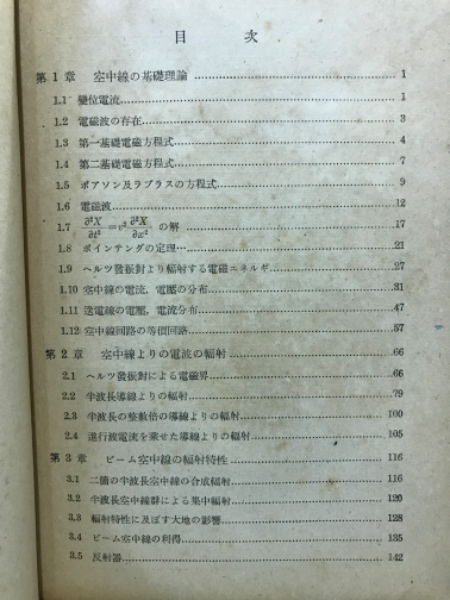 目次
第1章 空中線の基礎理論 ........ 1
1.1 變位電流 ........ 1
1.2 電磁波の存在 ........ 3
1.3 第一基礎電磁方程式 ........ 4
1.4 第二基礎電磁方程式 ........ 7
1.5 ポアソン及ラプラスの方程式 ........ 9
1.6 電磁波 ........ 12
1.7 ∂²X/∂t² = v² ∂²X/∂x² の解 ........ 17
1.8 ポインテングの定理 ........ 21
1.9 ヘルツ發振對より輻射する電磁エネルギ ........ 27
1.10 空中線の電流，電壓の分布 ........ 31
1.11 送電線の電壓，電流分布 ........ 47
1.12 空中線回路の等價回路 ........ 57
第2章 空中線よりの電波の輻射 ........ 66
2.1 ヘルツ發振對による電磁界 ........ 66
2.2 半波長導線よりの輻射 ........ 79
2.3 半波長の整數倍の導線よりの輻射 ........ 100
2.4 進行波電流を乘せた導線よりの輻射 ........ 105
第3章 ビーム空中線の輻射特性 ........ 116
3.1 二箇の半波長空中線の合成輻射 ........ 116
3.2 半波長空中線群による集中輻射 ........ 120
3.3 輻射特性に及ぼす大地の影響 ........ 128
3.4 ビーム空中線の利得 ........ 135
3.5 反射器 ........ 142